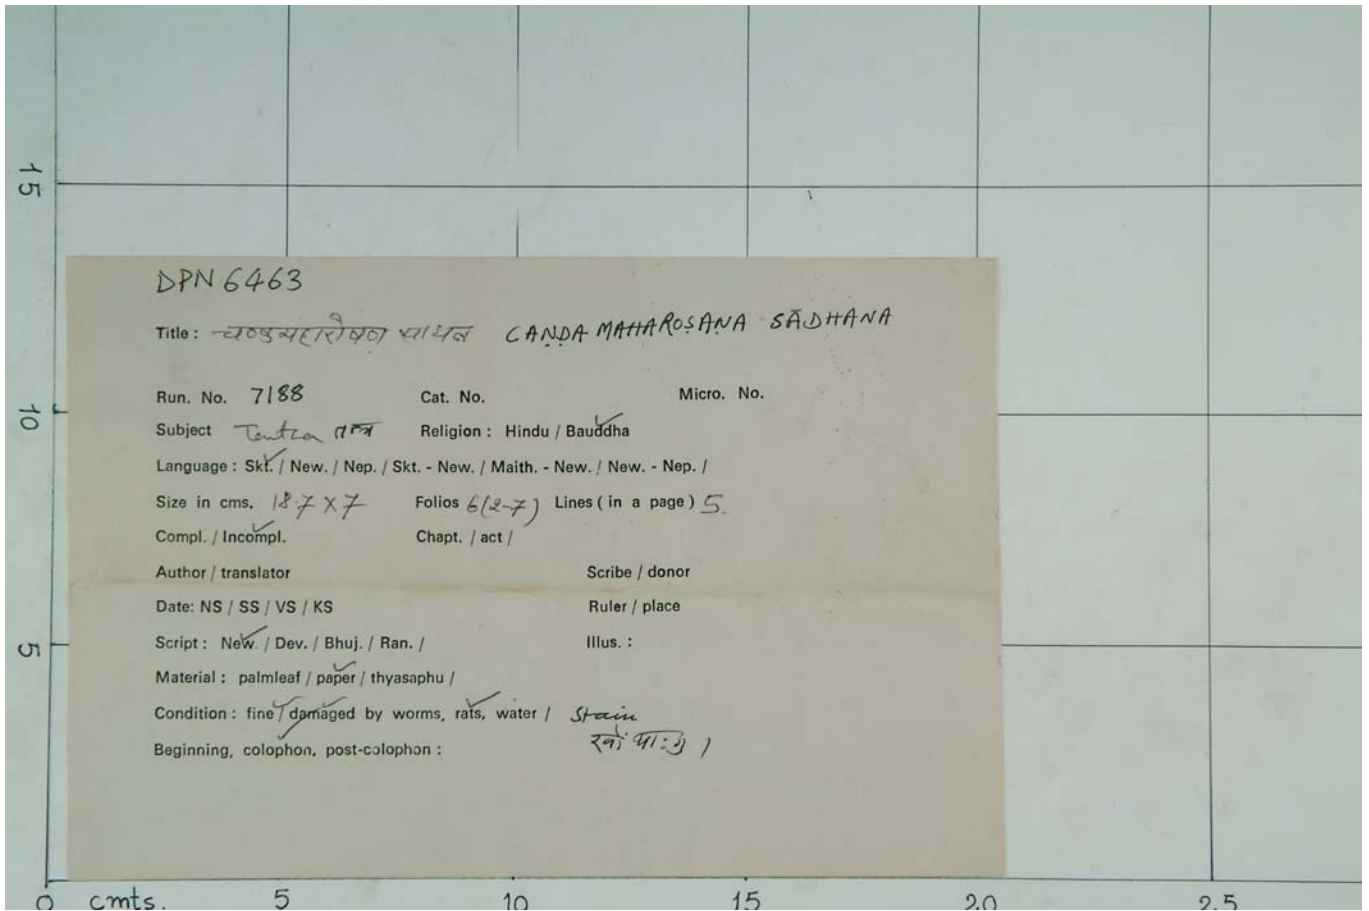 15
10
5
DPN 6463
Title : चण्डमहारोषण साधन CANDA MAHAROṢAṆA SĀDHANA
Run. No. 7188 Cat. No. Micro. No.
Subject Tantra तन्त्र Religion : Hindu / Bauddha
Language : Skt. / New. / Nep. / Skt. - New. / Maith. - New. / New. - Nep. /
Size in cms. 18.7 X 7 Folios 6(2-7) Lines ( in a page ) 5.
Compl. / Incompl. Chapt. / act /
Author / translator Scribe / donor
Date: NS / SS / VS / KS Ruler / place
Script : New. / Dev. / Bhuj. / Ran. / Illus. :
Material : palmleaf / paper / thyasaphu /
Condition : fine / damaged by worms, rats, water / Stain
Beginning, colophon, post-colophon :
0 cmts. 5 10 15 20 25